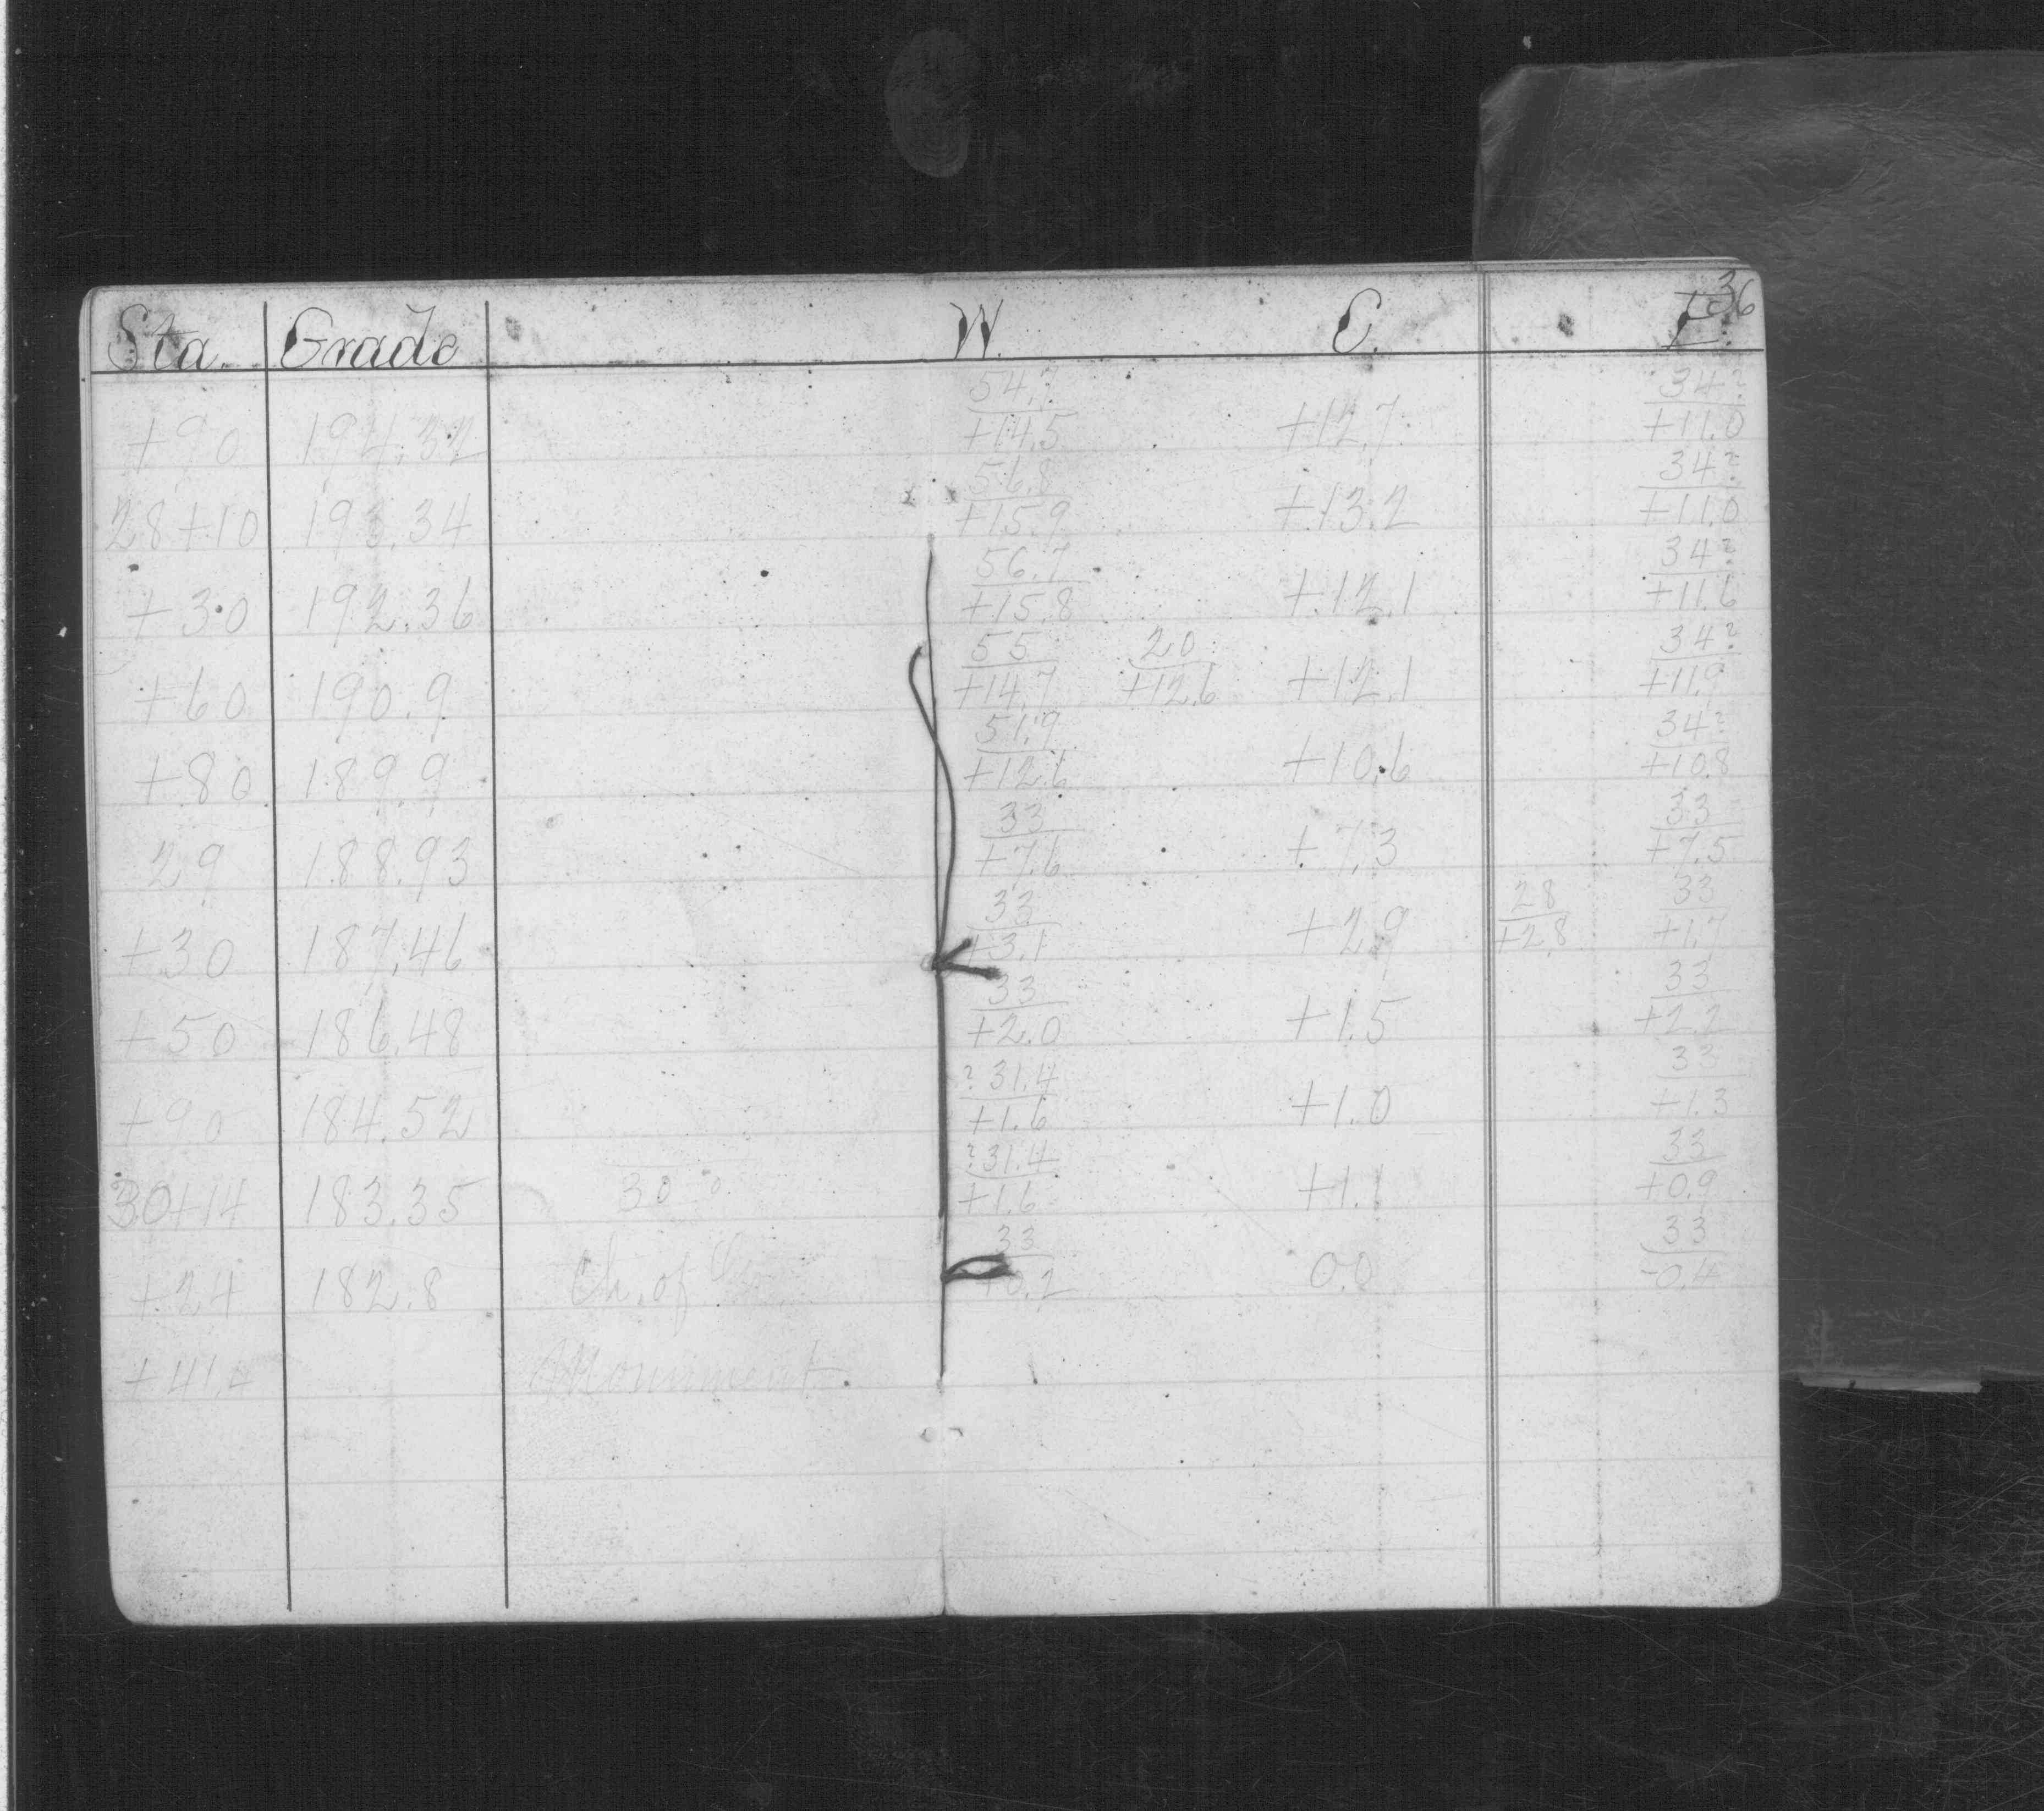 36
Sta. Grade W. C. E.
54.7 34?
+90 194.32 +14.5 +12.7 +11.0
56.8 34?
28+10 193.34 +15.9 +13.2 +11.0
56.7 34?
+30 192.36 +15.8 +12.1 +11.6
55 20 34?
+60 190.9 +14.7 +12.6 +12.1 +11.9
51.9 34?
+80 189.9 +12.6 +10.6 +10.8
33 33
29 188.93 +7.6 +7.3 +7.5
33 28 33
+30 187.46 +3.1 +2.9 +2.8 +1.7
33 33
+50 186.48 +2.0 +1.5 +2.2
? 31.4 33
+90 184.52 +1.6 +1.0 +1.3
? 31.4 33
30+14 183.35 30 +1.6 +1.1 +0.9
33 33
+24 182.8 Ch. of +0.2 0.0 -0.4
+41.4 Monument.